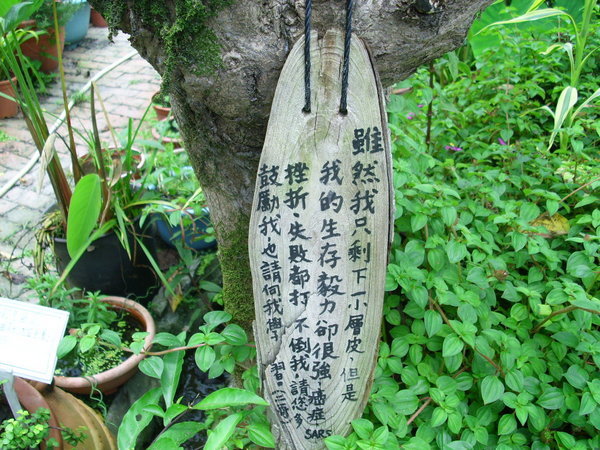 雖然我只剩下小層皮 但是
我的生存毅力卻很強,癌症 SARS
挫折、失敗都打不倒我,請您多
鼓勵我也請向我學習